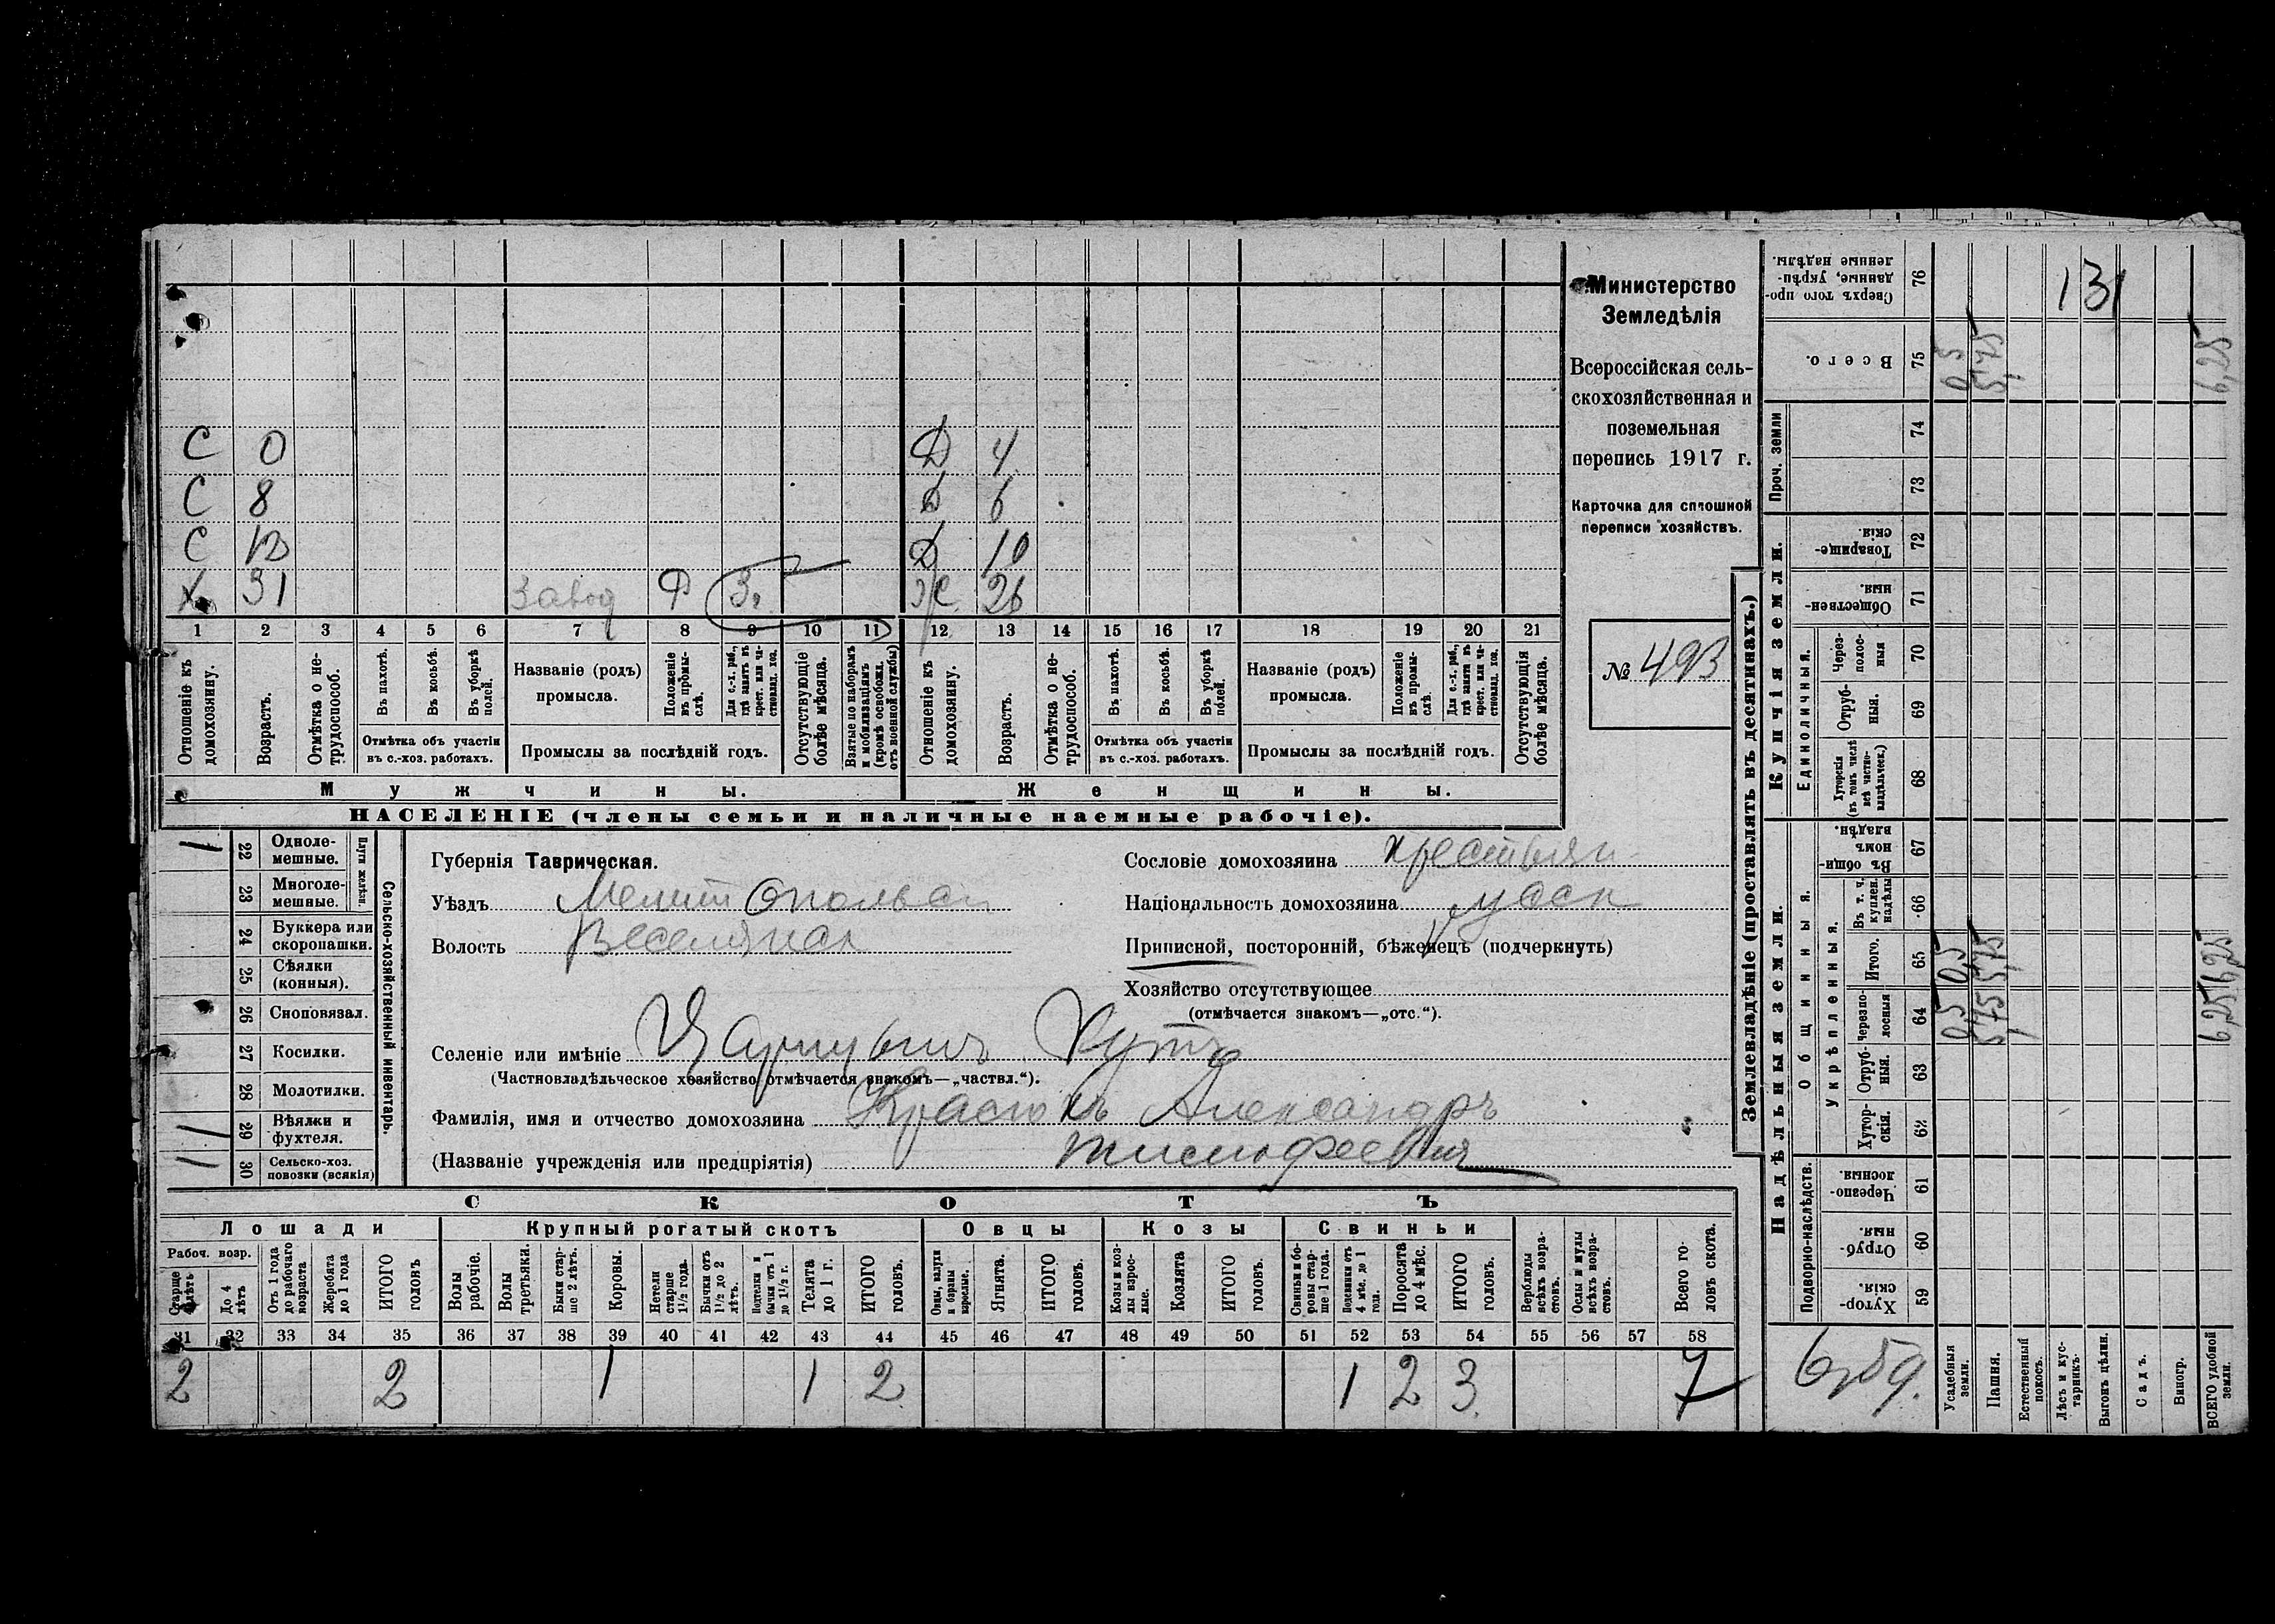 С 0 Д 4
С 8 Д 6
С 13 Д 10
Х 31 завод Ж 26
1 2 3 4 5 6 7 8 9 10 11 12 13 14 15 16 17 18 19 20 21
Отношеніе къ домохозяину.
Возрастъ.
Отмѣтка о не-
трудоспособ.
Въ пахотѣ.
Въ косьбѣ.
Въ уборкѣ
полей.
Отмѣтка объ участіи
въ с.-хоз. работахъ.
Названіе (родъ)
промысла.
Положеніе
въ промы-
слѣ.
Для с.-х. раб.,
гдѣ занятъ въ
крест. или ча-
стновлад. хоз.
Промыслы за послѣдній годъ.
Отсутствующіе
болѣе мѣсяца.
Взятые по наборамъ
и мобилизаціямъ
(кромѣ освобожд.
отъ военной службы)
Отношеніе къ
домохозяину.
Возрастъ.
Отмѣтка о не-
трудоспособ.
Въ пахотѣ.
Въ косьбѣ.
Въ уборкѣ
полей.
Отмѣтка объ участіи
въ с.-хоз. работахъ.
Названіе (родъ)
промысла.
Положеніе
въ промы-
слѣ.
Для с.-х. раб.,
гдѣ занята въ
крест. или ча-
стновлад. хоз.
Промыслы за послѣдній годъ.
Отсутствующія
болѣе мѣсяца.
Мужчины.
Женщины.
НАСЕЛЕНІЕ (члены семьи и наличные наемные рабочіе).
Министерство
Земледѣлія
Всероссійская сель-
скохозяйственная и
поземельная
перепись 1917 г.
Карточка для сплошной
переписи хозяйствъ.
№ 493
1 22 Одноле-
мешные.
23 Многоле-
мешные.
Плуги желѣзн.
24 Буккера или
скоропашки.
25 Сѣялки
(конныя).
26 Сноповязал.
27 Косилки.
28 Молотилки.
1 29 Вѣялки и
фухтеля.
1 30 Сельско-хоз.
повозки (всякія)
Сельско-хозяйственный инвентарь.
Губернія Таврическая.
Уѣздъ Мелитопольск
Волость Веселянск
Сословіе домохозяина крестьян
Національность домохозяина
Приписной, посторонній, бѣженецъ (подчеркнуть)
Хозяйство отсутствующее
(отмѣчается знакомъ—„отс.“).
Селеніе или имѣніе
(Частновладѣльческое хозяйство отмѣчается знакомъ—„частвл.“).
Фамилія, имя и отчество домохозяина Александръ
(Названіе учрежденія или предпріятія) Тимофеевич
СКОТЪ
Лошади Крупный рогатый скотъ Овцы Козы Свиньи
Рабоч. возр.
Старше
4 лѣтъ
До 4
лѣтъ
Отъ 1 года
до рабочаго
возраста
Жеребята
до 1 года
ИТОГО
головъ
Волы
рабочіе.
Волы
третьяки.
Быки стар-
ше 2 лѣтъ.
Коровы.
Нетели
старше
1½ года.
Бычки отъ
1½ до 2
лѣтъ.
Подтелки и
бычки отъ 1
до 1½ г.
Телята
до 1 г.
ИТОГО
головъ.
Овцы, валухи
и бараны
взрослые.
Ягнята.
ИТОГО
головъ.
Козы и коз-
лы взрос-
лые.
Козлята
ИТОГО
головъ.
Свиньи и бо-
ровы стар-
ше 1 года.
Подсвинки отъ
4 мѣс. до 1
года.
Поросята
до 4 мѣс.
ИТОГО
головъ.
Верблюды
всѣхъ возра-
стовъ.
Ослы и мулы
всѣхъ возра-
стовъ.
Всего го-
ловъ скота.
31 32 33 34 35 36 37 38 39 40 41 42 43 44 45 46 47 48 49 50 51 52 53 54 55 56 57 58
2 2 1 1 2 1 2 3 7
Землевладѣніе (проставлять въ десятинахъ.)
Надѣльныя земли.
Купчія земли.
Проч. земли
Подворно-наслѣдств.
Общинныя.
Укрѣпленныя.
Единоличныя.
59 Хутор-
скія.
60 Отруб-
ныя.
61 Черезпо-
лосныя.
62 Хутор-
скія.
63 Отруб-
ныя.
64 Черезпо-
лосныя
65 Итого.
66 Въ т. ч.
куплен.
надѣлы
67 Въ общи-
номъ
владѣн.
68 Хуторскія
(въ томъ числѣ
всѣ частно-
владѣльческ.)
69 Отруб-
ныя.
70 Через-
полос-
ныя
71 Обществен-
ныя.
72 Товарище-
скія.
73
74
75 Всего.
76 Сверхъ того про-
данные, укрѣп-
ленные надѣлы.
131
Усадебныя
земли. 0,5 0,5 0,5
Пашня. 5,75 5,75 5,75
Естественный
покосъ.
Лѣсъ и кус-
тарникъ.
Выгонъ цѣлин.
Садъ.
Виногр.
ВСЕГО удобной
земли. 6,25 6,25 6,25